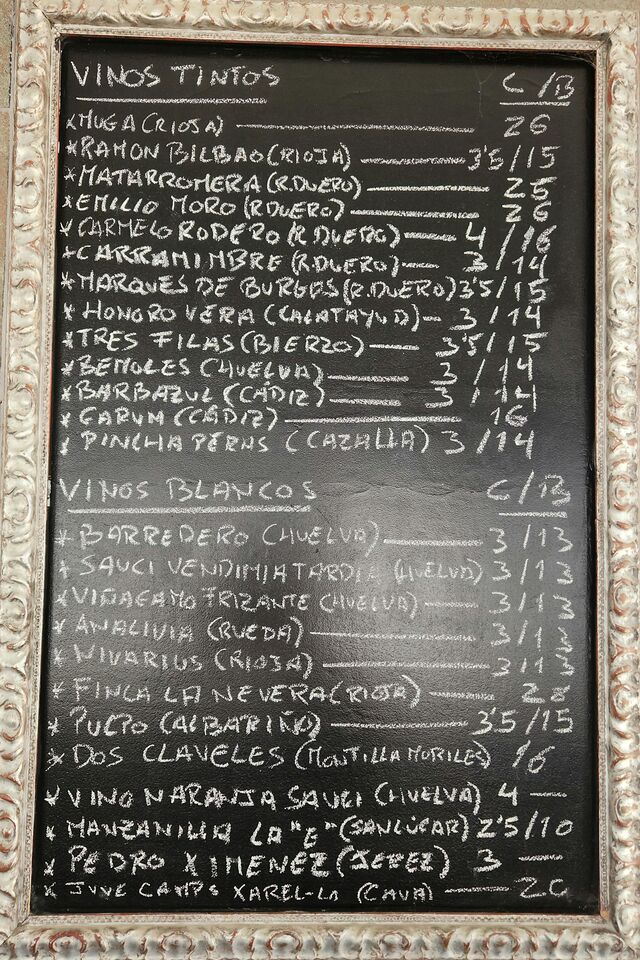 VINOS TINTOS C/B
*MUGA (RIOJA) — 26
*RAMON BILBAO (RIOJA) — 3'5/15
*MATARROMERA (R.DUERO) — 25
*EMILIO MORO (R.DUERO) — 26
*CARMELO RODERO (R.DUERO) — 4/16
*CARRAMIMBRE (R.DUERO) — 3/14
*MARQUES DE BURGOS (R.DUERO) 3'5/15
*HONORO VERA (CALATAYUD) — 3/14
*TRES FILAS (BIERZO) — 3'5/15
*BEMOLES (HUELVA) — 3/14
*BARBAZUL (CÁDIZ) — 3/14
*GARUM (CÁDIZ) — 16
*PINCHAPERAS (CAZALLA) 3/14
VINOS BLANCOS C/B
*BARREDERO (HUELVA) — 3/13
*SAUCI VENDIMIA TARDIE (HUELVA) 3/13
*VIÑAGAMO FRIZANTE (HUELVA) — 3/13
*ANALIVIA (RUEDA) — 3/13
*NIVARIUS (RIOJA) — 3/13
*FINCA LA NEVERA (RIOJA) — 28
*PULPO (ALBARIÑO) — 3'5/15
*DOS CLAVELES (MONTILLA MORILES) 16
*VINO NARANJA SAUCI (HUELVA) 4 —
*MANZANILLA LA "E" (SANLÚCAR) 2'5/10
*PEDRO XIMENEZ (JEREZ) 3 —
*JUVE CAMPS XAREL-LO (CAVA) —